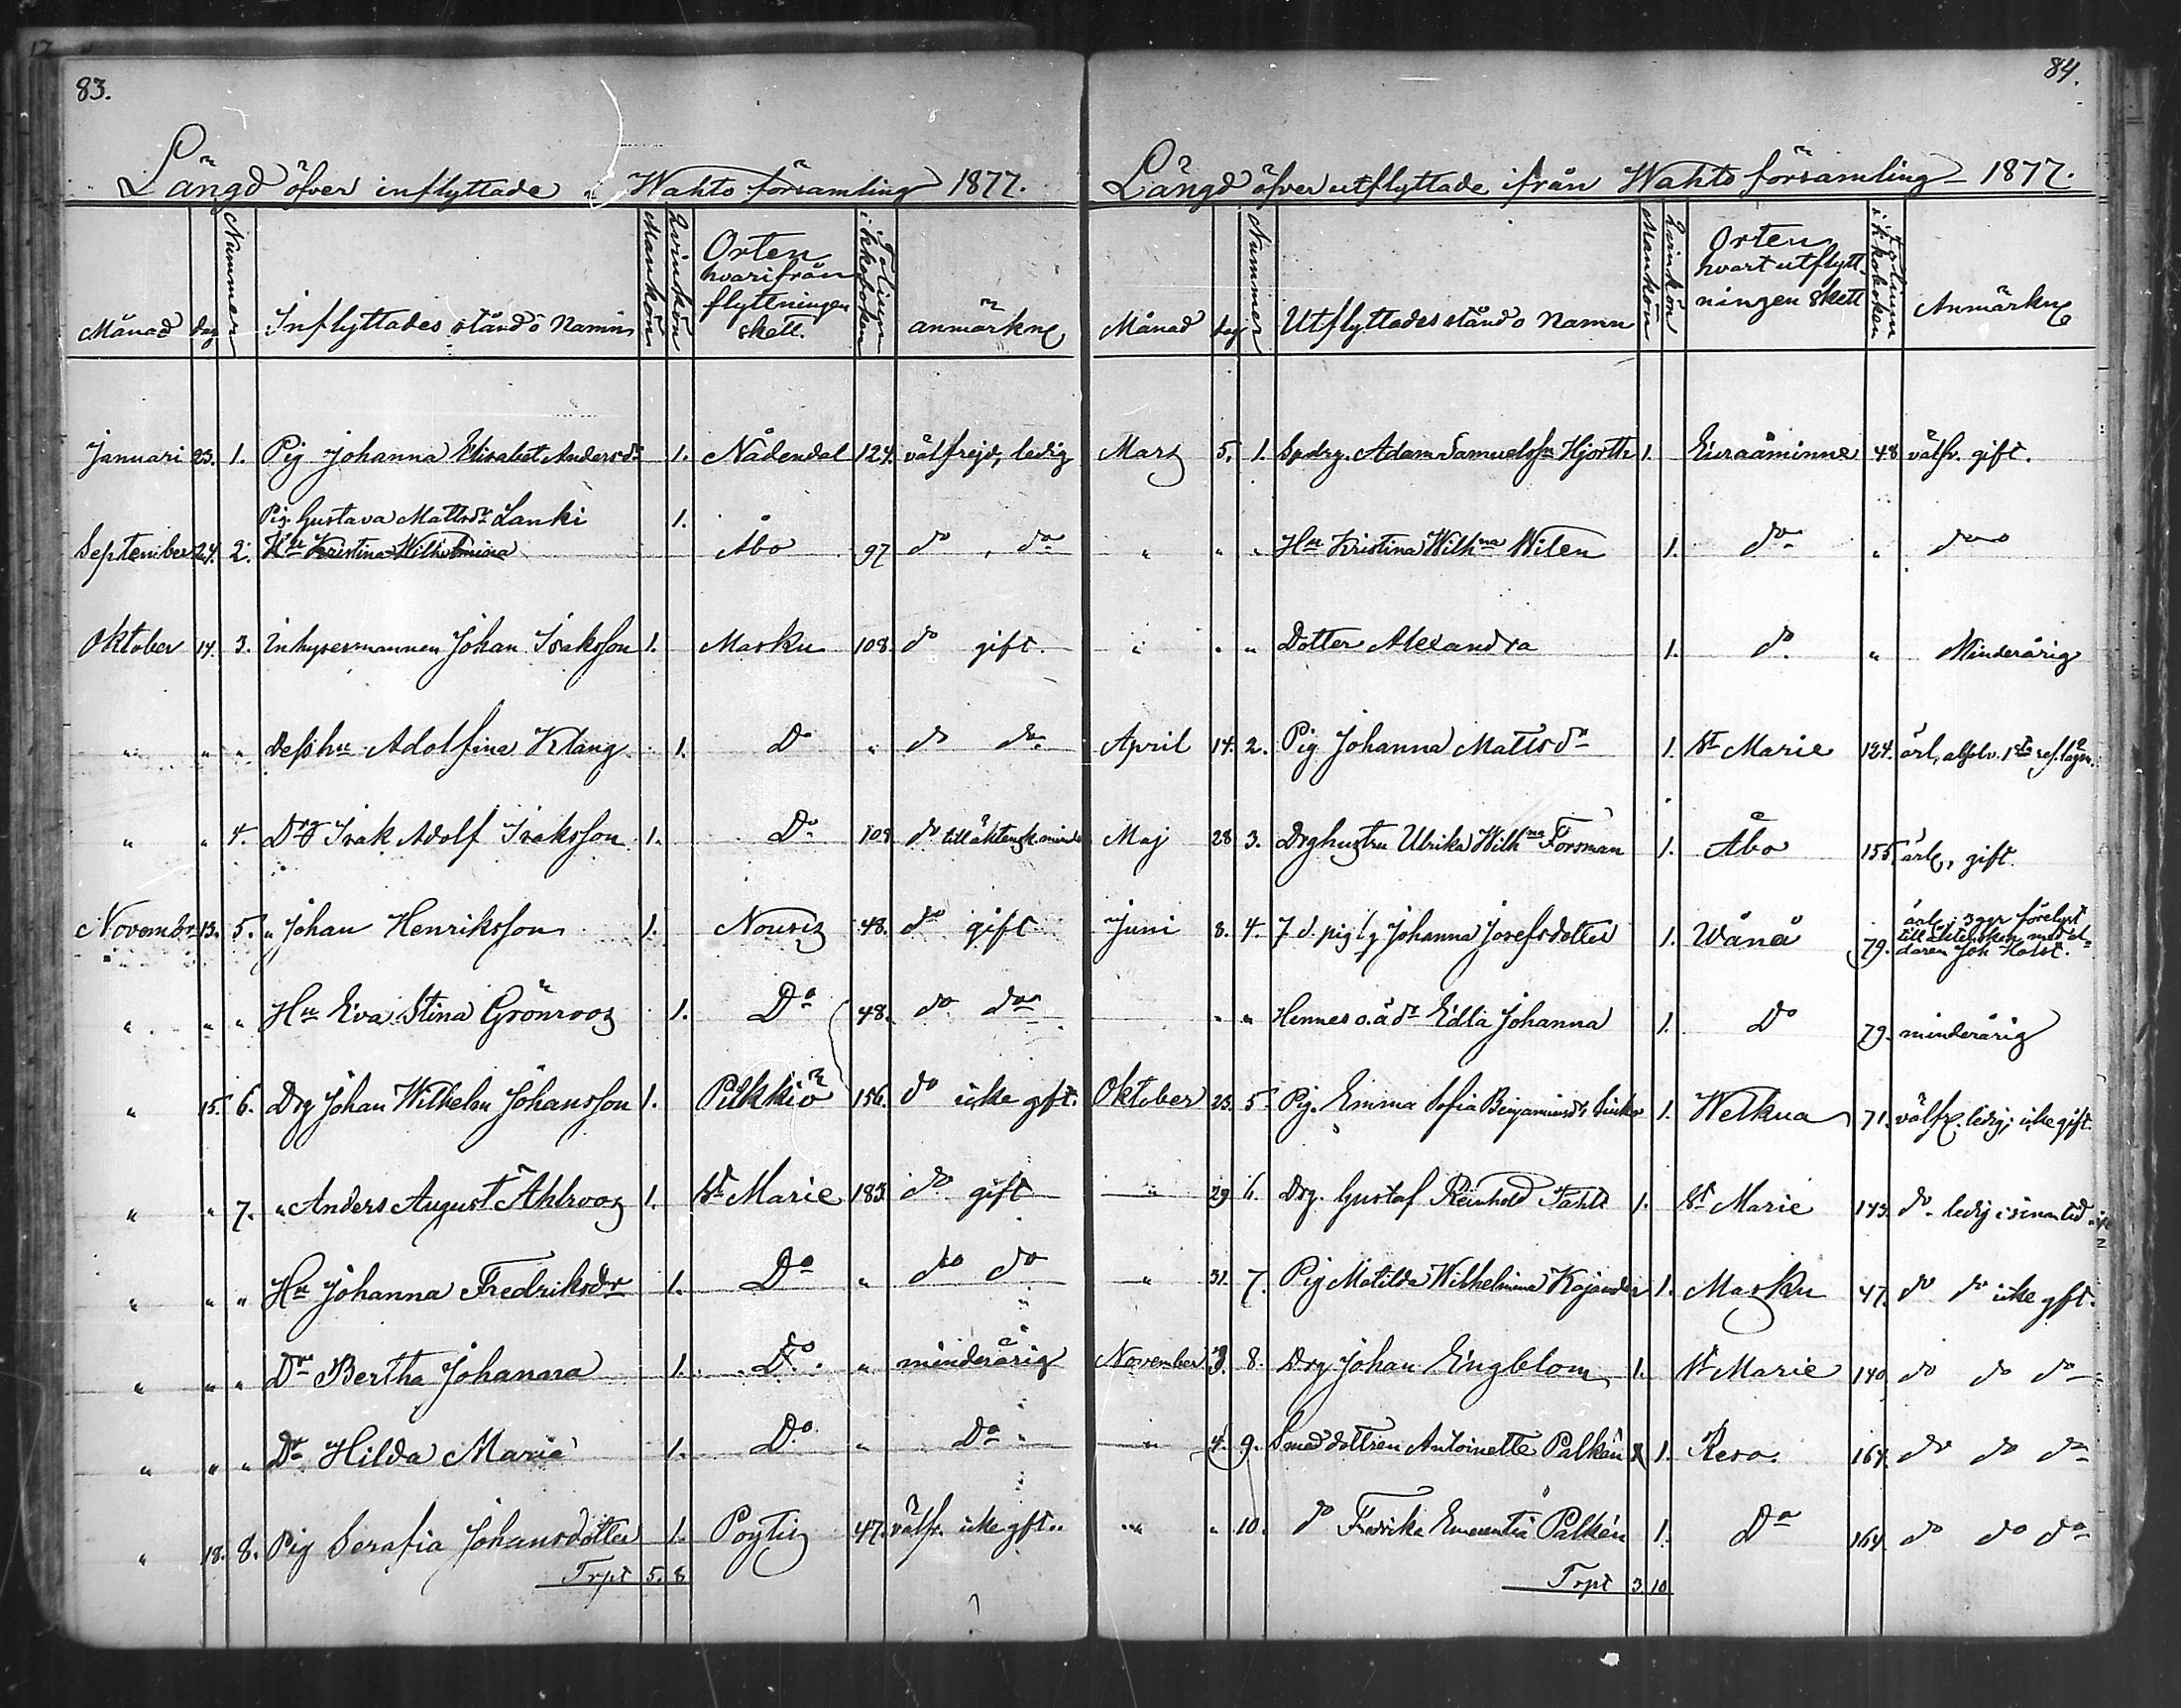 83.
Längd öfver inflyttade i Wahto församling 1877.
Månad dag Nummer Inflyttades stånd o Namn Mankön Qvinkön Orten hvarifrån flyttningen skett. Folium i kkoboken anmärkng
Januari 23. 1. Pig Johanna Elisabet Andersdr 1. Nådendal 124. välfrejd, ledig
Pig. Gustava Mattsdr Lanki 1.
September 24. 2. Hu Kristina Wilhelmina Åbo 97 do, do
Oktober 14. 3. Inhysesmannen Johan Isaksson 1. Masku 108. do gift.
" " " Dess hu Adolfina Klang 1. Do " do do
" " 4. Dr Isak Adolf Isaksson 1. Do 109. do till äktensk.
Novembr 13. 5. " Johan Henriksson 1. Nousis 48. do gift
" " " Hu Eva Stina Grönroos 1. Do 48. do do
" 15. 6. Drg Johan Wilhelm Johansson 1. Pikkiö 156. do icke gft.
" " 7. " Anders August Ählroos 1. St Marie 183. do gift
" " " Hu Johanna Fredriksdr 1. Do " do do
" " " Dr Bertha Johanna 1. Do " minderårig
" " " Dr Hilda Maria 1. Do " Do
" 18. 8. Pig Serafia Johansdotter 1. Poytis 47. välfr. icke gft.
Trpt 5. 8
84.
Längd öfver utflyttade ifrån Wahto församling 1877.
Månad dag Nummer Utflyttades stånd o Namn Mankön Qvinkön Orten hvart utflyttningen skett Folium i kkoboken Anmärkng
Mars 5. 1. Spdrg. Adam Samuelsson Hjorth 1. Euraåminne 48 välfr. gift.
" " " Hu Kristina Wilhna Wilen 1. do " do
" " " Dotter Alexandra 1. do " Minderårig
April 14. 2. Pig Johanna Mattsdr 1. St Marie 124. ärl, absolv. 1sta
Maj 28 3. Drghustru Ulrika Wilhna Forsman 1. Åbo 155. ärl, gift.
Juni 8. 4. f d. pig Johanna Josefsdotter 1. Wånå 79. ärl; 3 ggr förelyst till äktensk. med daren Joh Holst.
" " Hennes o.ä dr Edla Johanna 1. Do 79. minderårig
Oktober 23. 5. Pig. Emma Sofia Benjaminsdr 1. Welkua 71. välfr. ledig; icke gift.
" 29 6. Drg. Gustaf Reinhold Tahlt 1. St Marie 143. do ledig
" 31. 7. Pig Matilda Wilhelmina Kajander 1. Masku 47. do do icke gft.
November 3. 8. Drg Johan Engblom 1. St Marie 140 do do do
" 4. 9. Smeddottren Antoinette Palkén 1. Reso. 164. do do do
" " 10. do Fredrika Emerentia Palkén 1. Do 164. do do do
Trpt 3. 10